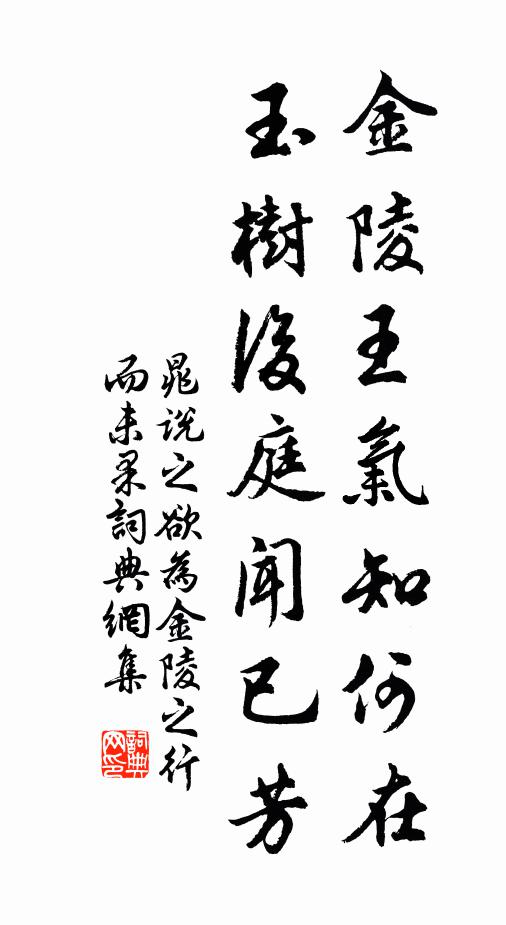 金陵王氣知何在
玉樹後庭聞已芳
晁説之欲為金陵之行
而未果詞典網集
詞典網印